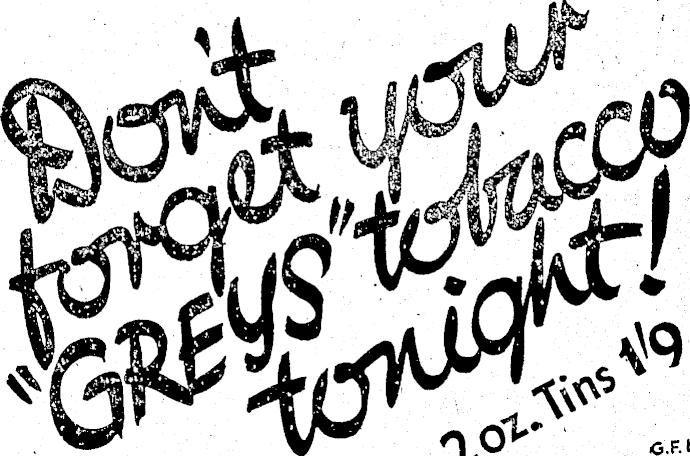 Don't
forget your
"GREYS" tobacco
tonight!
2 oz. Tins 1/9
G.F.